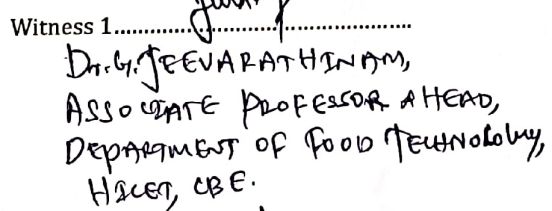 Witness 1................................................
Dr. G. JEEVARATHINAM,
ASSOCIATE PROFESSOR & HEAD,
DEPARTMENT OF FOOD TECHNOLOGY,
HICET, CBE.